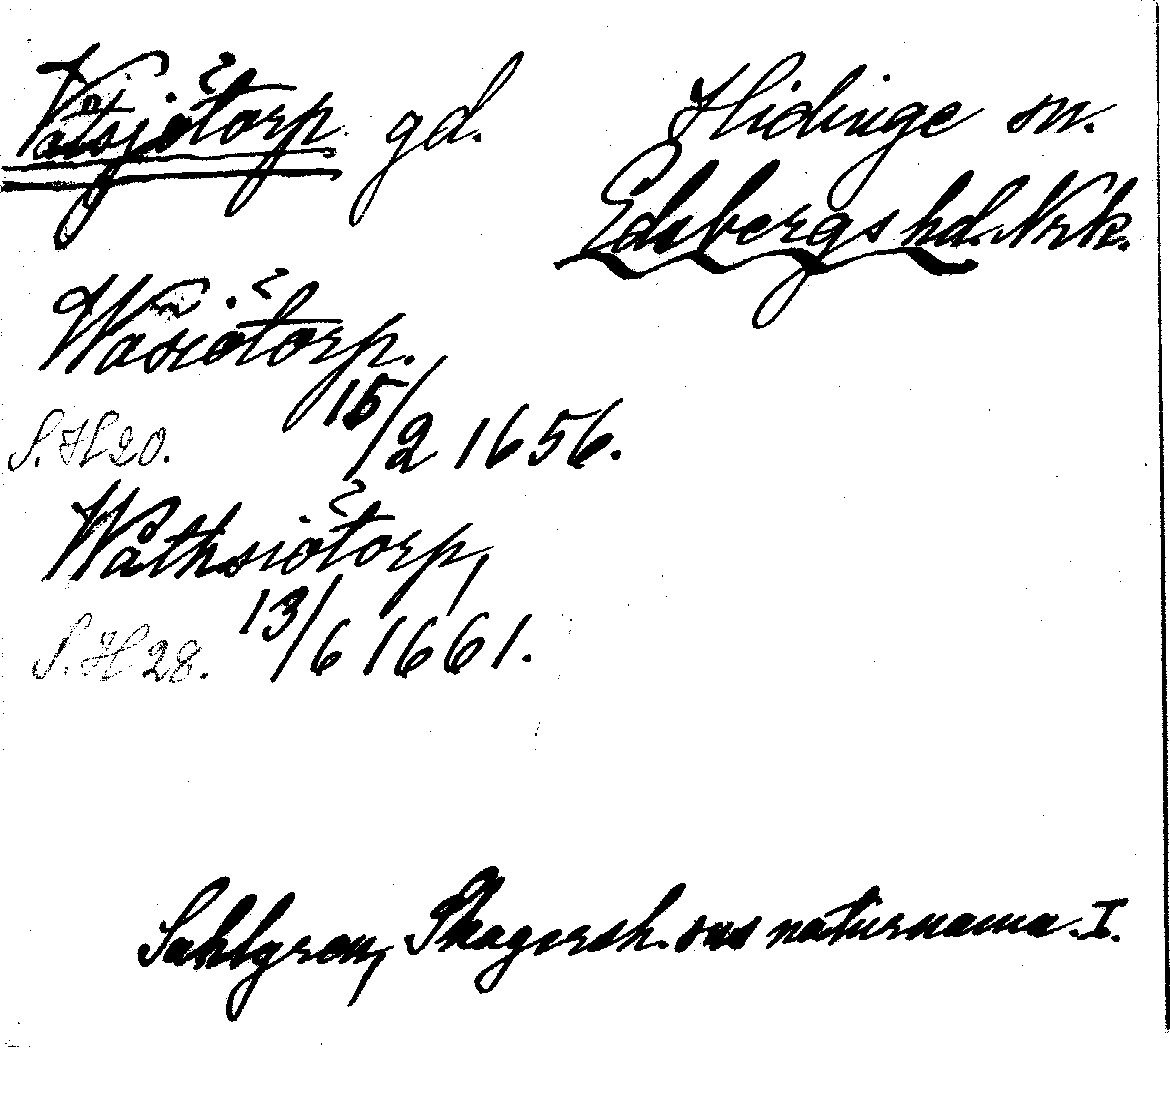 Våtsjötorp gd. Hidinge sn.
Edsbergs hd. Nrk.
Wåsiötorp.
S. H 20. 15/2 1656.
Wåthsiötorp,
S. H 28. 13/6 1661.
Sahlgren, Skagersh. sns naturnamn. I.